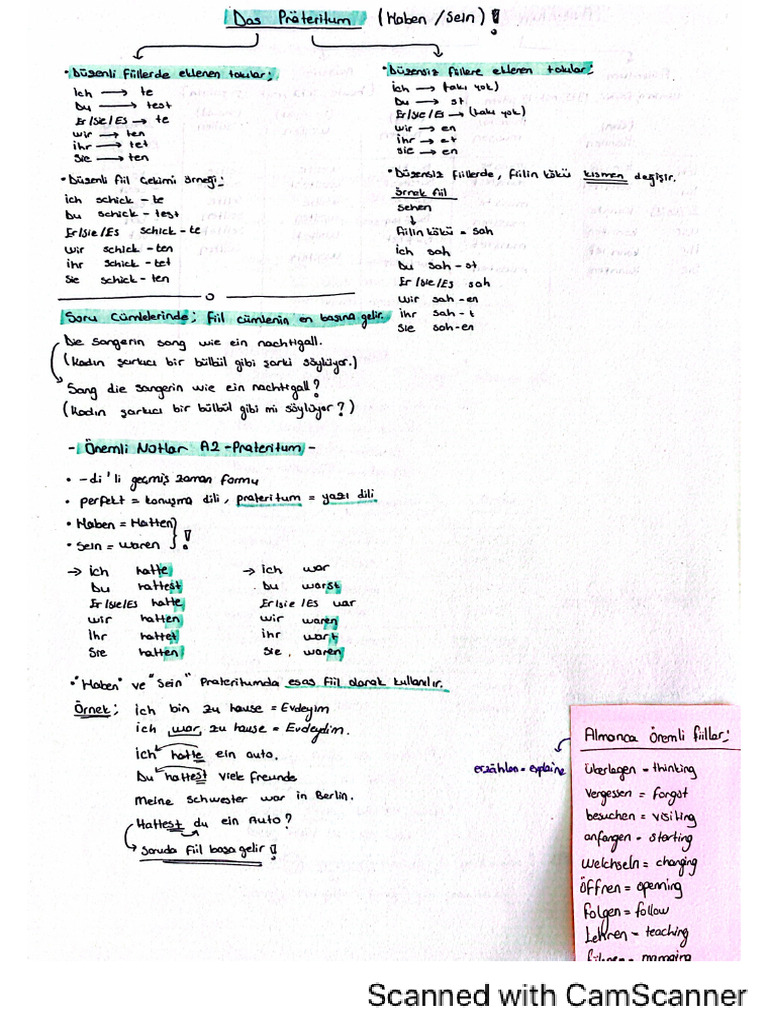 Das Präteritum (Haben / Sein) !
• Düzenli fiillerde eklenen takılar;
Ich → te
Du → test
Er/Sie/Es → te
wir → ten
ihr → tet
Sie → ten
• Düzenli fiil Çekimi örneği;
ich schick - te
Du schick - test
Er/sie/Es schick - te
wir schick - ten
ihr schick - tet
Sie schick - ten
• Düzensiz fiillere eklenen takılar;
ich → (takı yok)
Du → st
Er/Sie/Es → (takı yok)
wir → en
ihr → et
sie → en
• Düzensiz fiillerde, fiilin kökü kısmen değişir.
Örnek fiil
sehen
↓
fiilin kökü = sah
ich sah
Du sah - st
Er/sie/Es sah
wir sah - en
ihr sah - t
Sie sah - en
Soru Cümlelerinde; fiil cümlenin en başına gelir.
Die sangerin sang wie ein nachtigall.
(Kadın şarkıcı bir bülbül gibi şarkı söylüyor.)
Sang die sangerin wie ein nachtigall?
(Kadın şarkıcı bir bülbül gibi mi söylüyor?)
- Önemli Notlar A2 - Prateritum -
• -di'li geçmiş zaman formu
• perfekt = konuşma dili, prateritum = yazı dili
• Haben = Hatten
• Sein = waren } !
→ ich hatte
Du hattest
Er/sie/Es hatte
wir hatten
Ihr hattet
Sie hatten
→ ich war
Du warst
Er/sie/Es war
wir waren
ihr wart
Sie, waren
• "Haben" ve "Sein" Prateritumda esas fiil olarak kullanılır.
Örnek; ich bin zu hause = Evdeyim
ich war zu hause = Evdeydim.
ich hatte ein auto.
Du hattest viele freunde
Meine schwester war in Berlin.
Hattest du ein Auto?
Soruda fiil başa gelir!
erzählen = explaine
Almanca önemli fiiller;
überlagen = thinking
vergessen = forgot
besuchen = visiting
anfangen = starting
welchseln = changing
öffnen = openning
folgen = follow
Lehren = teaching
Scanned with CamScanner